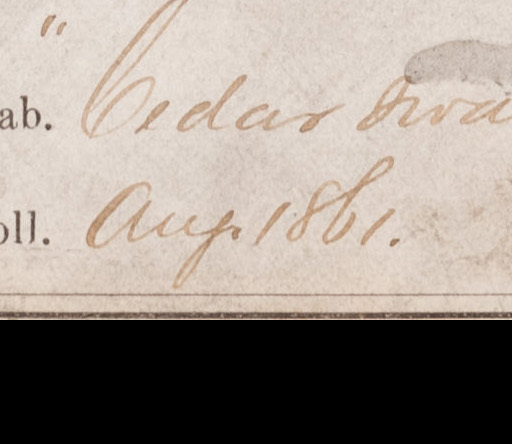 "
ab. Cedar Swa
oll. Aug. 1861.